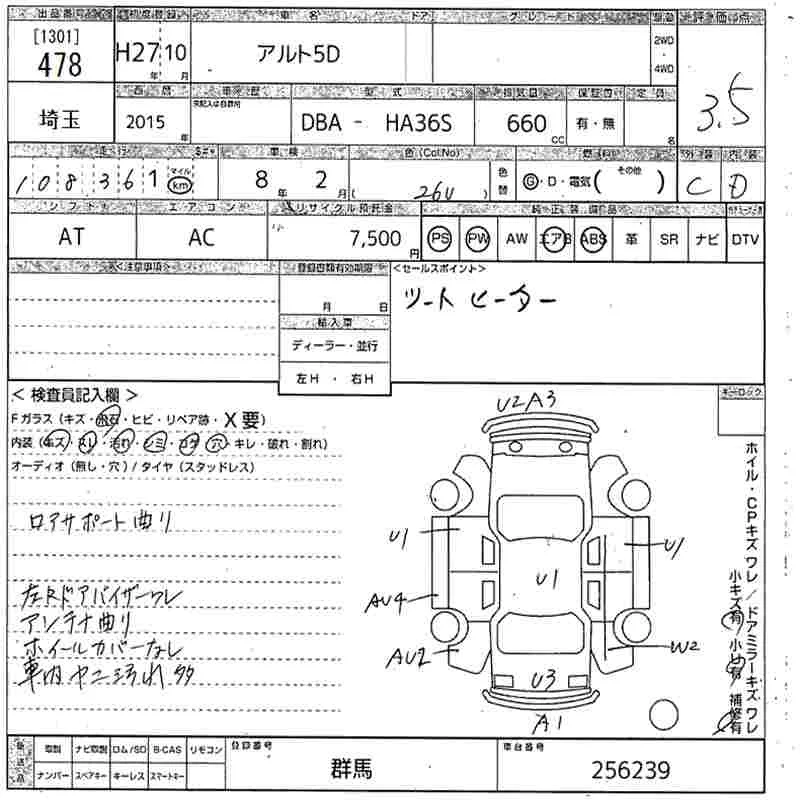 出品番号 初度登録 車名 ドア グレード 評価点
[1301]
478 H27年 10月 アルト5D 2WD・4WD 3.5
西暦 車歴 型式 排気量 保証書 定員
埼玉 2015年 DBA - HA36S 660cc 有・無 名
走行 車検 色(Col.No) 燃料 その他 外装 内装
108361 マイル km 8年 2月 ( 26U ) 色替 G・D・電気( ) C D
シフト エアコン リサイクル預託金 純正装備品
AT AC 7,500円 PS PW AW エアB ABS 革 SR ナビ DTV
<注意事項> 登録書類有効期限 <セールスポイント>
月 日 シートヒーター
輸入車
ディーラー・並行
左H ・ 右H
< 検査員記入欄 > キーロック
Fガラス (キズ・飛石・ヒビ・リペア跡・X要)
内装 (キズ・スレ・汚れ・シミ・コゲ・穴・キレ・破れ・割れ)
オーディオ (無し・穴) / タイヤ (スタッドレス)
U2A3
ロアサポート曲り
U1 U1
U1
AU4
AU2 W2
U3
A1
左Rドアバイザーワレ
アンテナ曲り
ホイールカバーなし
車内ヤニ汚れ多
ホイル・CPキズ ワレ / ドアミラーキズ ワレ
小キズ有 小凹有 補修有
後送品 取説 ナビ取説 ロム/SD B-CAS リモコン 登録番号 車台番号
ナンバー スペアキー キーレス スマートキー 群馬 256239